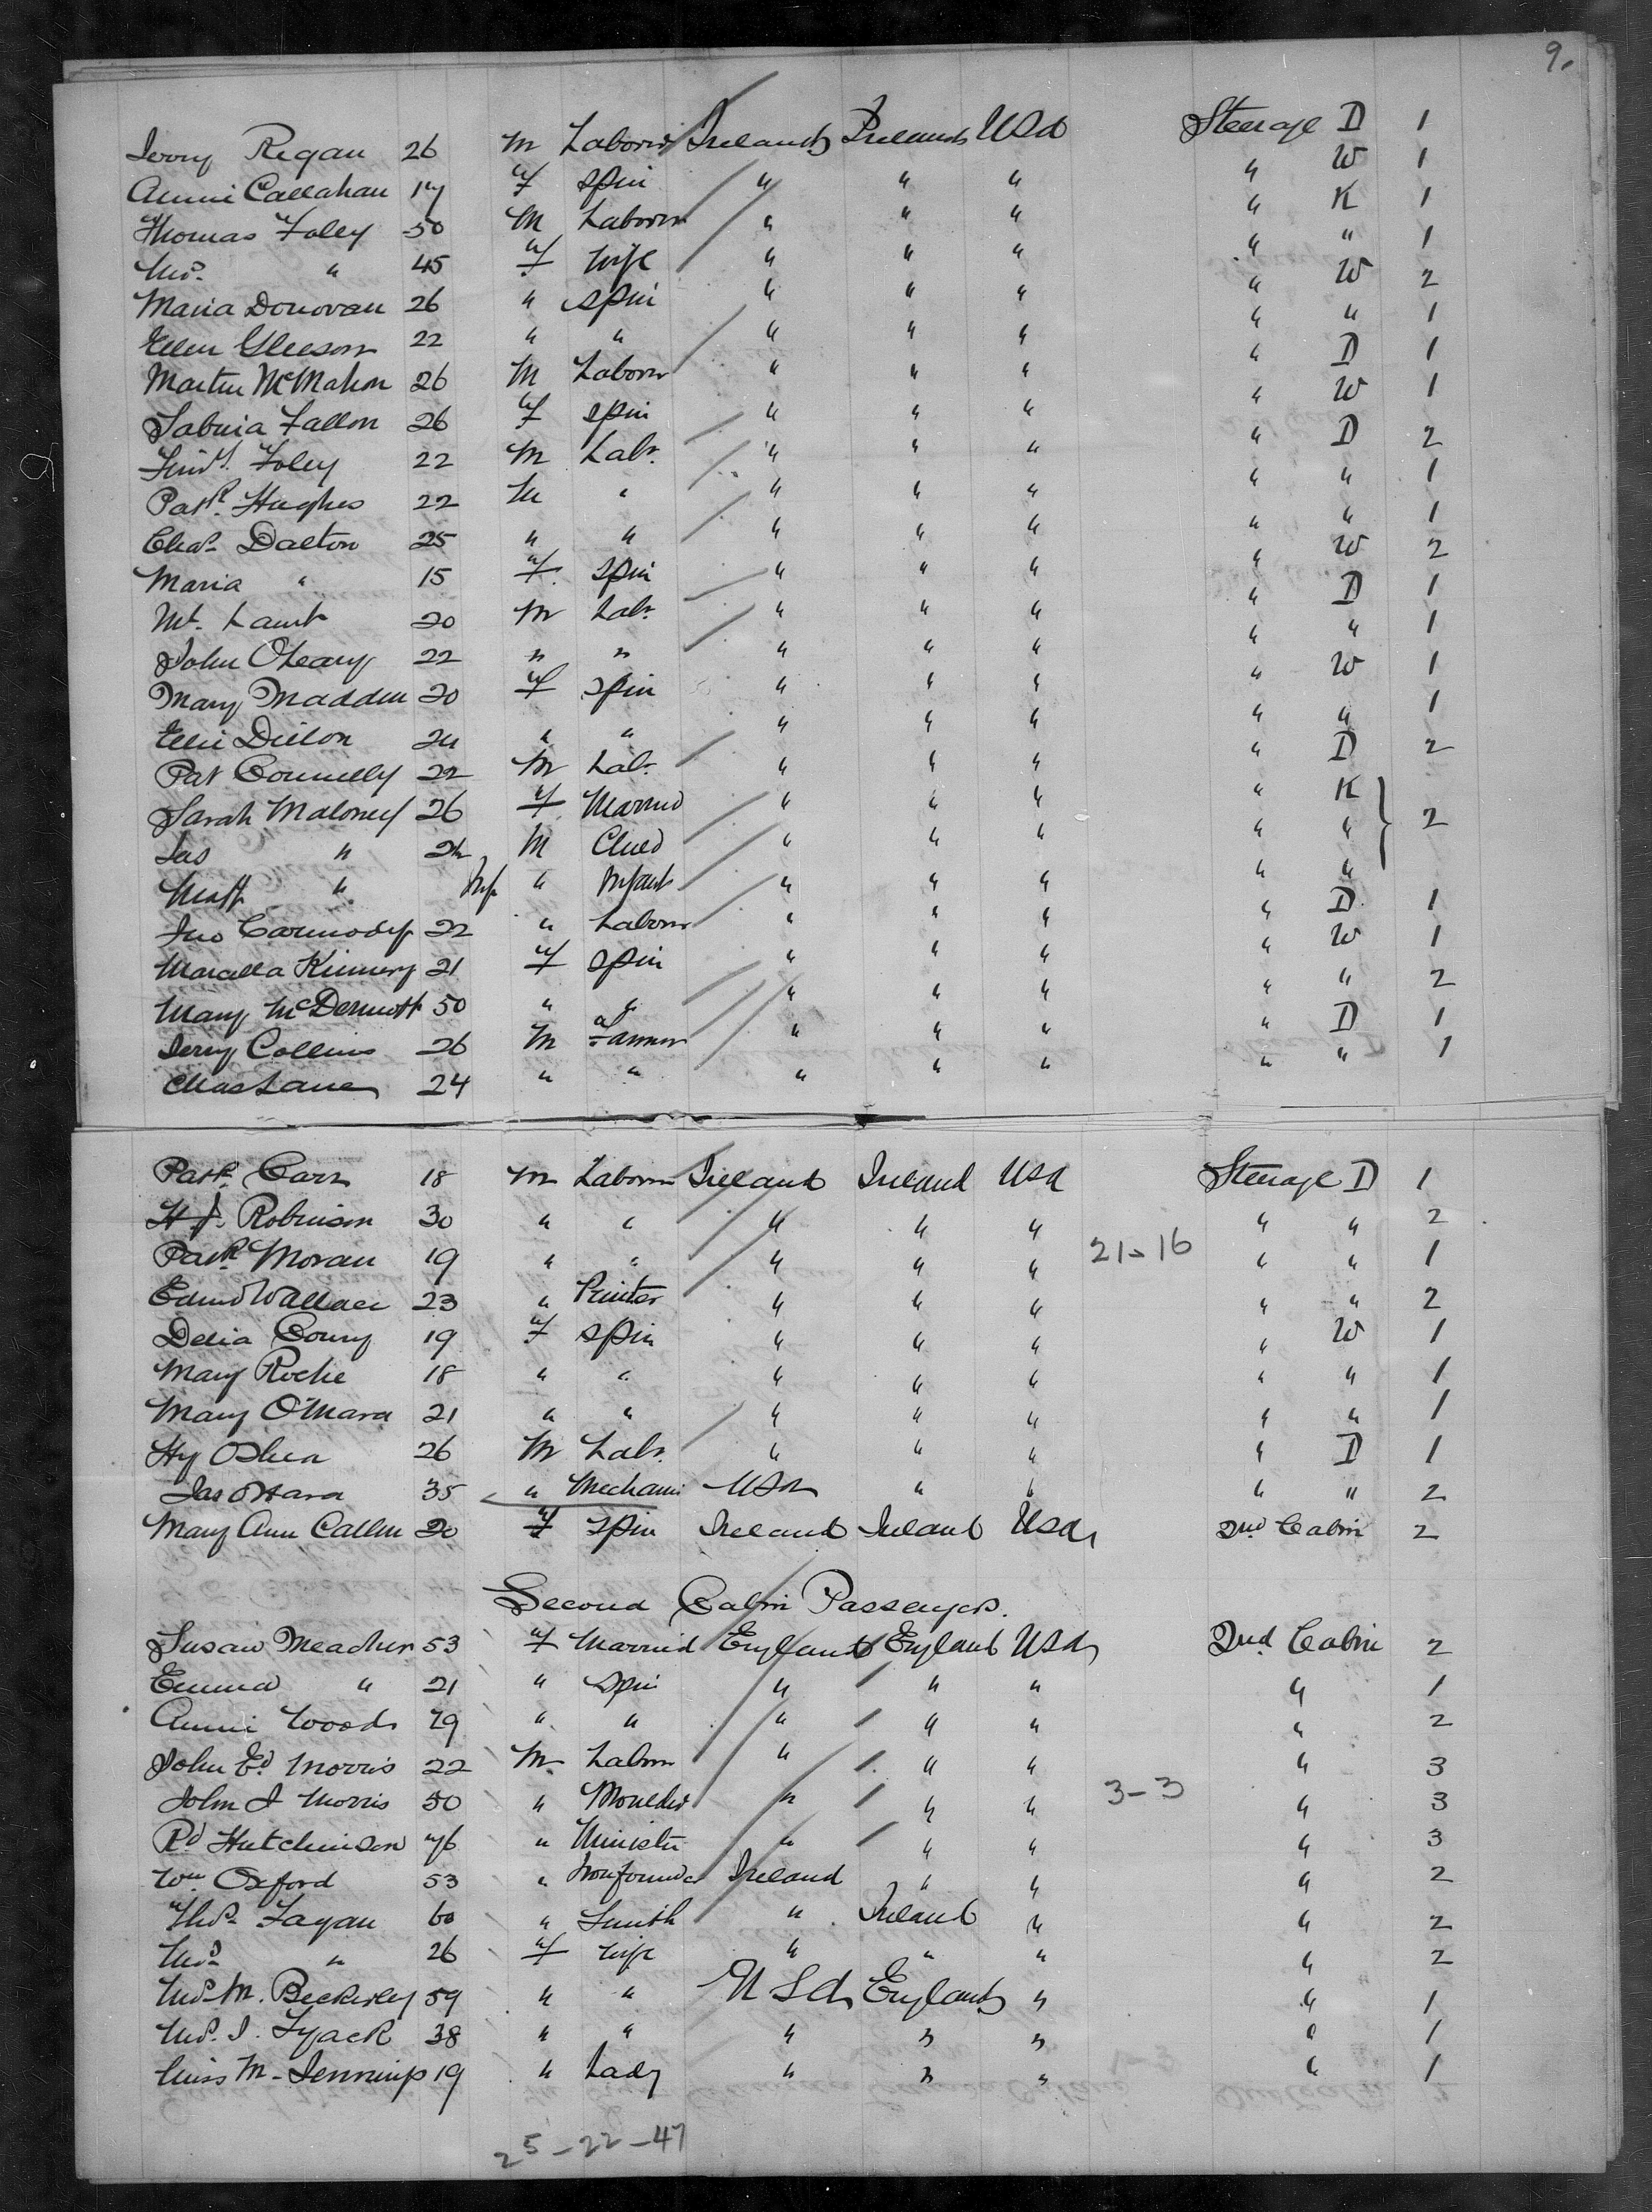 9.
Jerry Regan 26 M Laborer Ireland Ireland USA Steerage D 1
Annie Callahan 17 F Spin " " " " W 1
Thomas Foley 50 M Laborer " " " " K 1
Mrs. " 45 F Wife " " " " " 1
Maria Donovan 26 " Spin " " " " W 2
Ellen Gleeson 22 " " " " " " " 1
Martin McMahon 26 M Laborer " " " " D 1
Sabina Fallon 26 F Spin " " " " W 1
Foley 22 M Labr. " " " " D 2
Patk. Hughes 22 M " " " " " " 1
Chas. Dalton 25 " " " " " " " 1
Maria " 15 F Spin " " " " W 2
Mt. Lamb 20 M Labr. " " " " D 1
John OLeary 22 " " " " " " " 1
Mary Madden 20 F Spin " " " " W 1
Ellie Dillon 24 " " " " " " " 1
Pat Connelly 22 M Labr. " " " " D 2
Sarah Maloney 26 F Married " " " " K
Jas " M Child " " " " " 2
Matt " Inf " Infant " " " " "
Jno Carmody 22 " Laborer " " " " D 1
Marcella 21 F Spin " " " " W 1
Mary McDermott 50 " " " " " " " 2
Jerry Collins 26 M Farmer " " " " D 1
Chas Lane 24 " " " " " " " 1
Patk. Carr 18 M Laborer Ireland Ireland USA Steerage D 1
Robinson 30 " " " " " " " 2
Patk. Moran 19 " " " " " 21-16 " " 1
Edmd Wallace 23 " Printer " " " " " 2
Delia Coury 19 F Spin " " " " W 1
Mary Roche 18 " " " " " " " 1
Mary O'Mara 21 " " " " " " " 1
Hy OShea 26 M Labr. " " " " D 1
Jas OHara 35 " Mechanic USA " " " " 2
Mary Ann Callen 20 F Spin Ireland Ireland USA 2nd Cabin 2
Second Cabin Passengers.
Susan Meacher 53 F Married England England USA 2nd Cabin 2
Emma " 21 " Spin " " " " 1
Annie Woods 29 " " " " " " 2
John Ed. Morris 22 M Laborer " " " " 3
John J Morris 50 " Moulder " " " 3-3 " 3
Rd Hutchinson 76 " Minister " " " " 3
Wm Oxford 53 " Ironfounder Ireland " " " 2
Thos. Fagan 60 " Smith " Ireland " " 2
Mrs " 26 F Wife " " " " 2
Mrs M. Beckerley 59 " " USA England " " 1
Mrs. J. Tyack 38 " " " " " " 1
Miss M. Jennings 19 " Lady " " " " 1
25-22-47